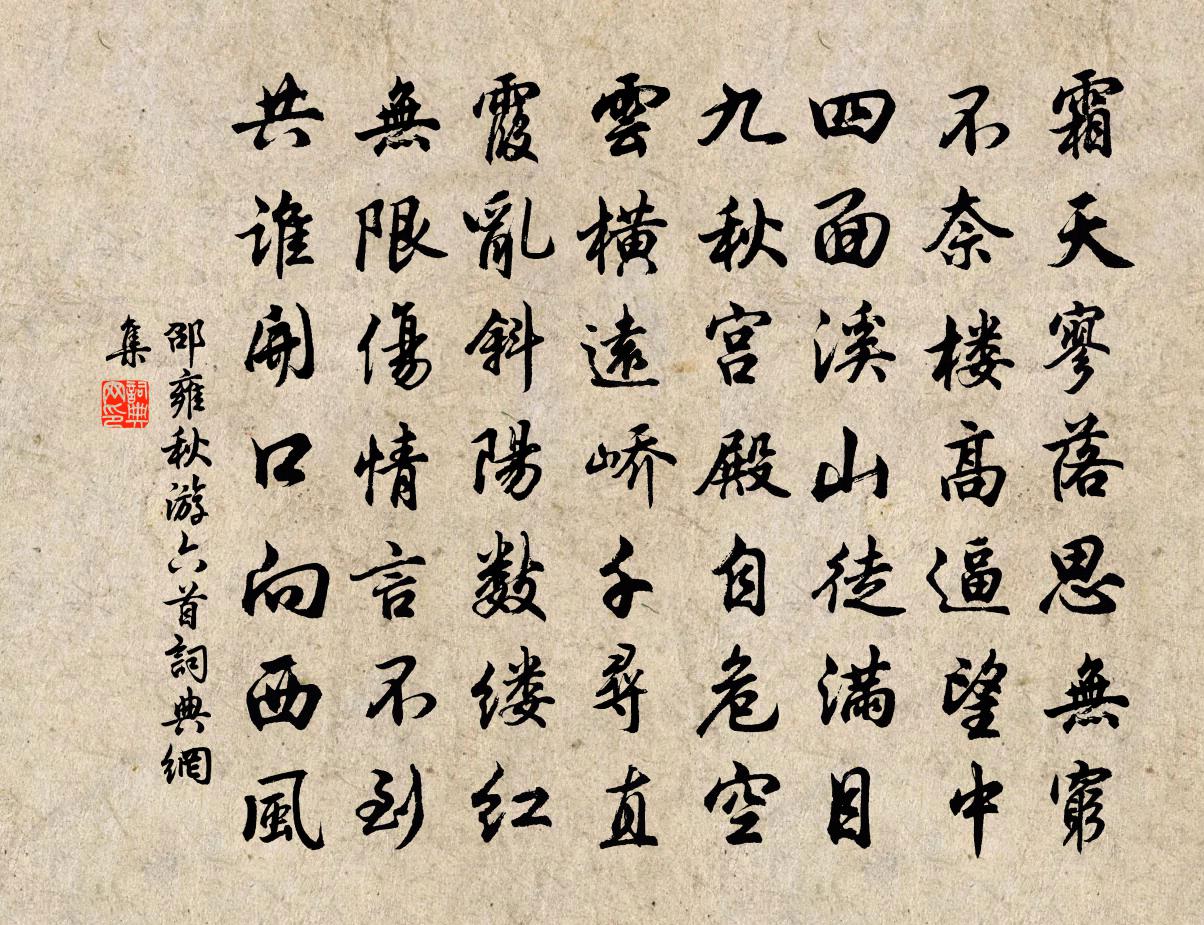 霜天寥落思無窮
不奈楼高逼望中
四面溪山徒滿目
九秋宫殿自危空
雲横遠嶠千尋直
霞亂斜陽数缕红
無限傷情言不到
共谁開口向西風
邵雍秋游六首詞典網
集
詞典
网印